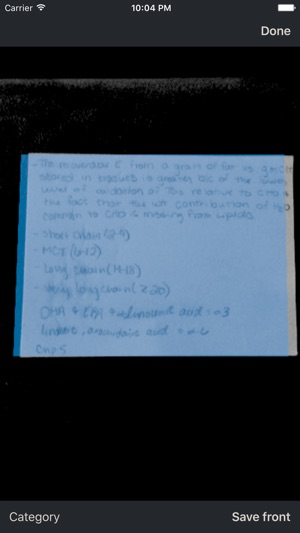 Carrier 10:04 PM
Done
- The from a gram of fat vs g
stored in is greater b/c of the lower
level of oxidation of relative to CHO &
the fact that the wt contribution of H2O
common to CHO is missing from lipids.
- Short chain (2-4)
- MCT (6-12)
- long chain (14-18)
- very long chain (≥20)
DHA & EPA & acid = n-3
linoleic, acid = n-6
Chp 5
Category
Save front